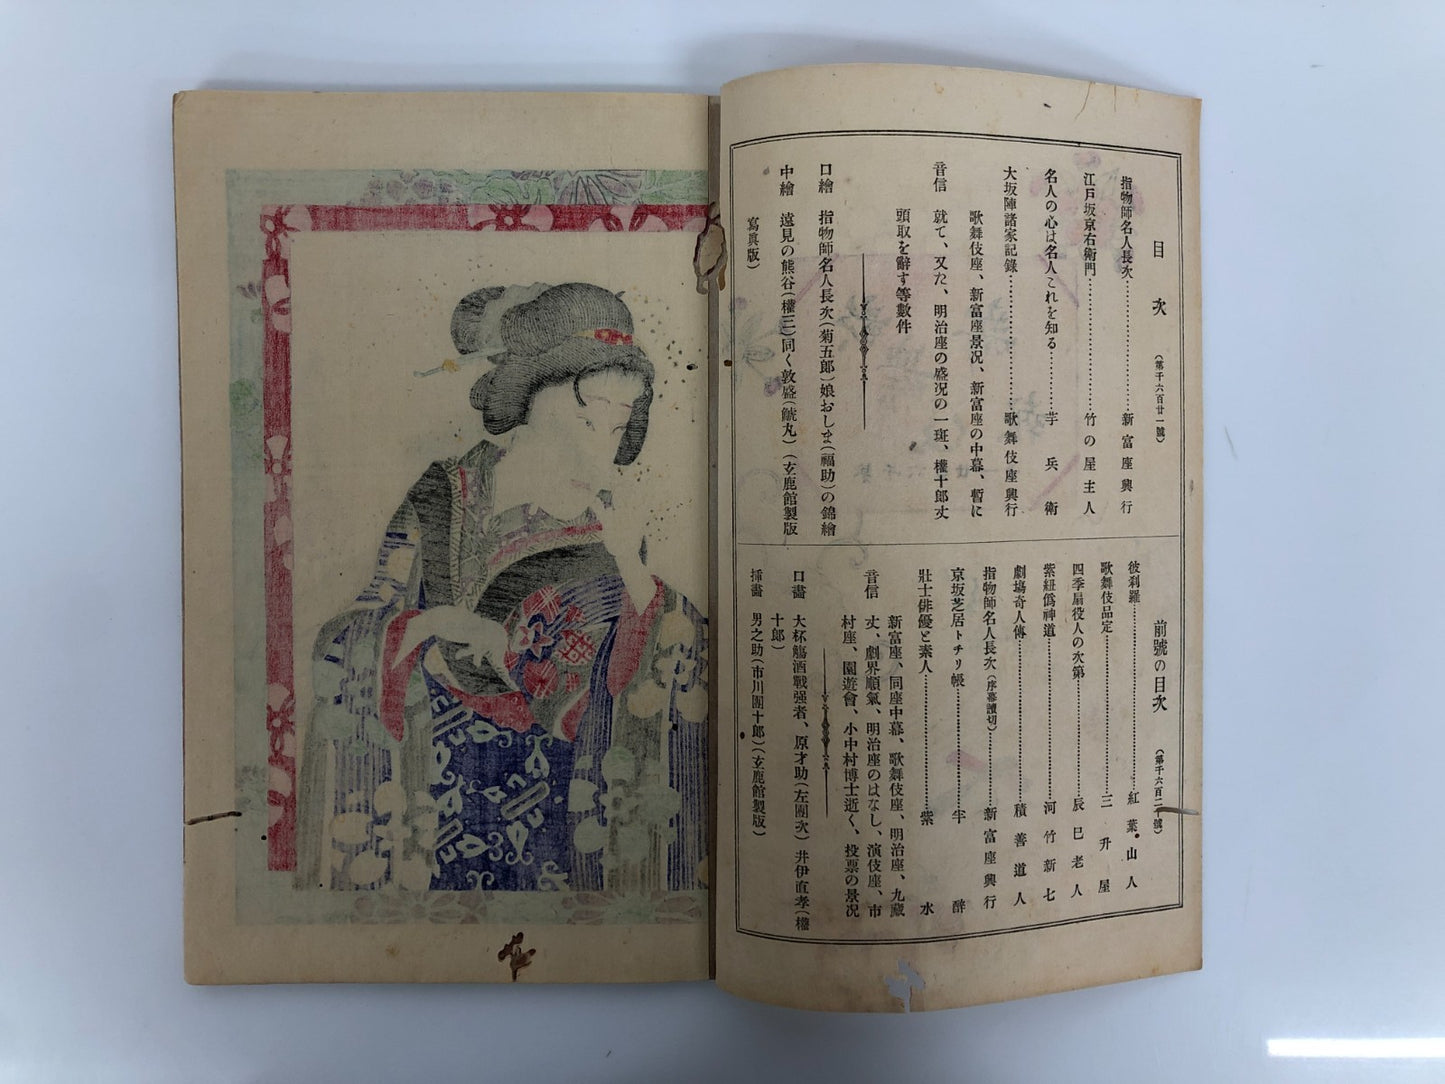 目次 (第千六百廿一號)
指物師名人長次……………新富座興行
江戸坂京右衛門……………竹の屋主人
名人の心は名人これを知る……………芋兵衛
大坂陣諸家記錄……………歌舞伎座興行
歌舞伎座、新富座景况、新富座の中幕、暫に
音信 就て、又た、明治座の盛况の一班、權十郎丈
頭取を辭す等數件
口繪 指物師名人長次(菊五郎)娘おしま(福助)の錦繪
中繪 遠見の熊谷(權三)同く敦盛(鯱丸)(玄鹿館製版
寫眞版)
前號の目次 (第千六百二十號)
彼刹羅……………紅葉山人
歌舞伎品定……………三升屋
四季扇役人の次第……………辰巳老人
紫紐僞神道……………河竹新七
劇塲奇人傳……………積善道人
指物師名人長次(序幕讀切)……………新富座興行
京坂芝居トチリ帳……………半醉
壯士俳優と素人……………紫水
新富座、同座中幕、歌舞伎座、明治座、九藏
音信 丈、劇界順氣、明治座のはなし、演伎座、市
村座、園遊會、小中村博士逝く、投票の景况
口畵 大杯觴酒戰强者、原才助(左團次)井伊直孝(權
十郎)
挿畵 男之助(市川團十郎)(玄鹿館製版)